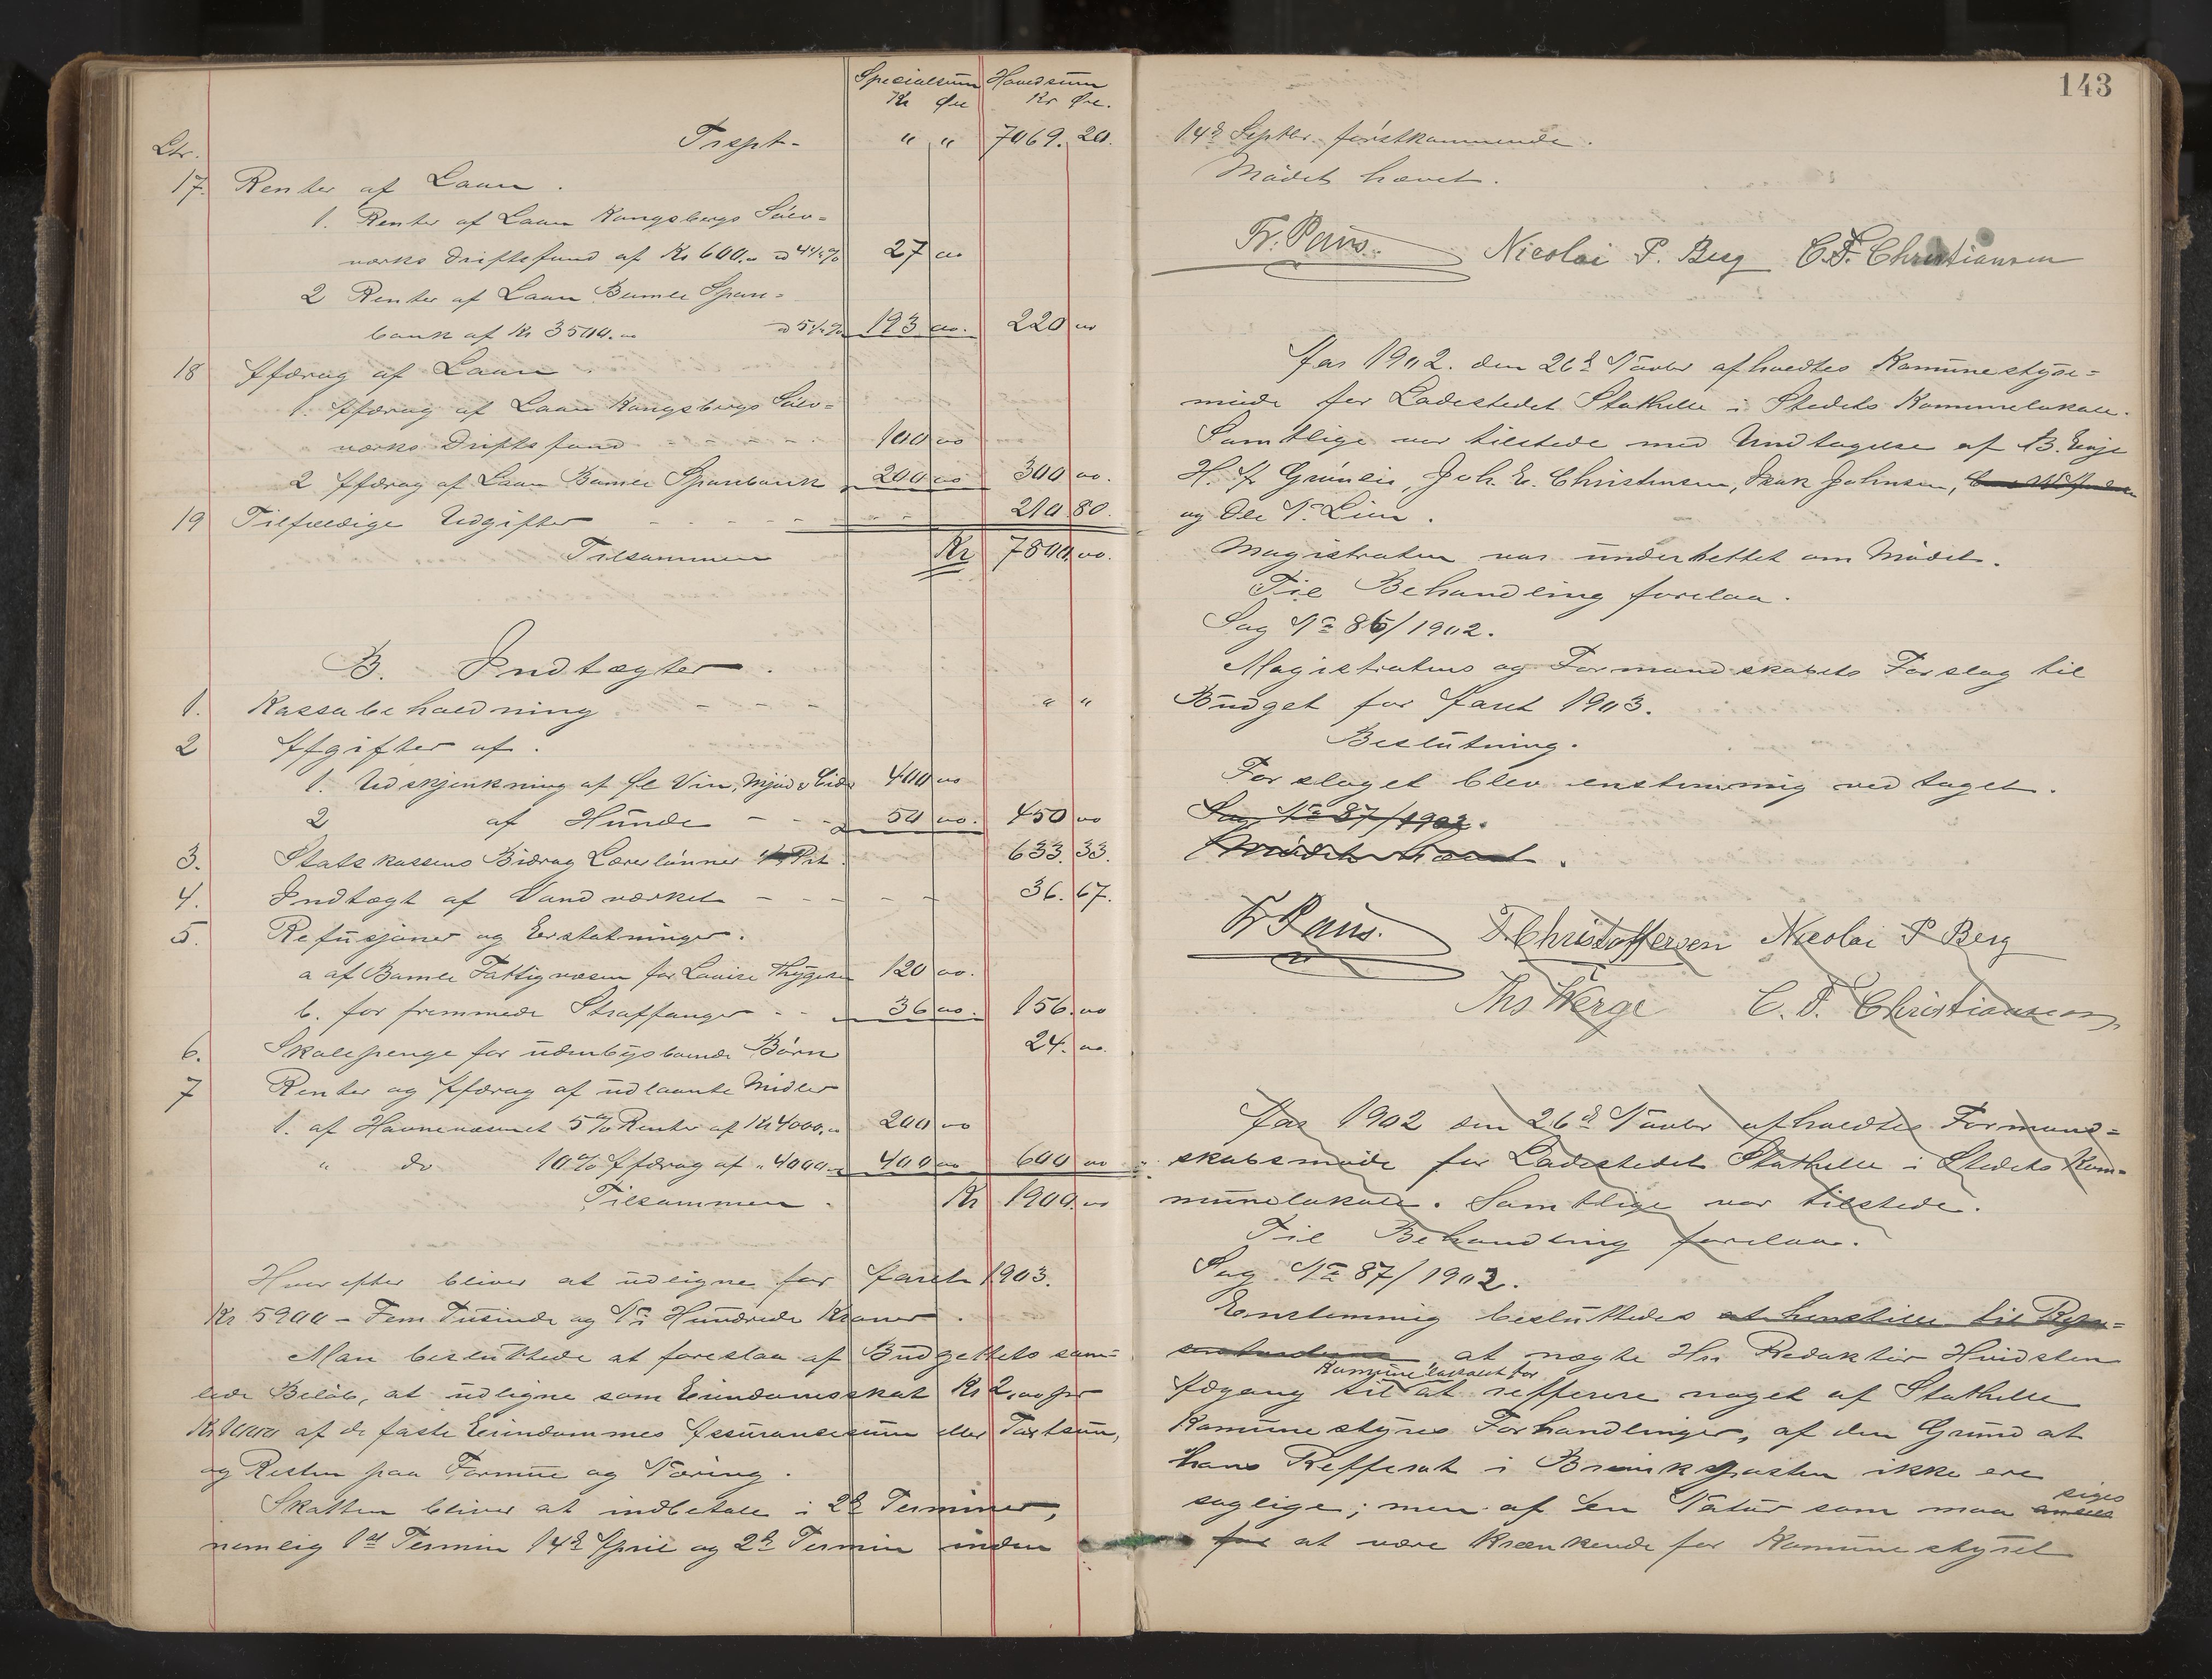 Specialsum Hovedsum
Kr Øre Kr Øre.
Ltr. Trspt- " " 7069. 20.
17. Renter af Laan.
1. Renter af Laan Kongsbergs Sølv=
værks Driftsfund af Kr 600.00 à 4½% 27 00
2 Renter af Laan Bamle Spare=
bank af Kr 3500.00 à 5½% 193 00. 220 00
18 Afdrag af Laan.
1. Afdrag af Laan Kongsbergs Sølv=
værks Driftsfund - - - - - 100 00
2 Afdrag af Laan Bamle Sparebank 200 00 300 00.
19 Tilfældige Udgifter - - - - - - 210 80.
Tilsammen Kr 7800.00.
B. Indtægter.
1. Kassabeholdning - - - " "
2 Afgifter af.
1. Udskjenkning af Øl Vin, Mjød & Cider 400 00
2 af Hunde - - - 50 00. 450 00
3. Statskassens Bidrag Lærerlønner 633. 33.
4. Indtægt af Vandværket - - - - - 36. 67.
5. Refusjoner og Erstatninger.
a af Bamle Fattigvæsen for Louise Thygesen 120 00.
b. for fremmede Straffanger - - 36 00. 156.00
6. Skolepenge for udenbysboende Børn 24. 00.
7 Renter og Afdrag af udlaante Midler
1. af Havnevæsenet 5% Renter af Kr 4000.00 200 00
" do 10% Afdrag af " 4000.00 400 00 600 00
Tilsammen. Kr 1900.00
Hvorefter bliver at udligne for Aaret 1903.
Kr 5900 - Fem Tusinde og Ni Hundrede Kroner.
Man besluttede at foreslaa af Budgettets sam=
lede Beløb, at udligne som Eiendomsskat Kr 2,00 pr
Kr 1000 af de faste Eiendommes Assurancesum eller Taxtsum,
og Resten paa Formue og Næring.
Skatten bliver at indbetale i 2de Terminer,
nemlig 1ste Termin 14de April og 2den Termin inden
143
14de Septbr. førstkommende.
Mødet hævet.
Fr. Paus. Nicolai P. Berg C. F. Christiansen
Aar 1902. den 26de Novbr afholdtes Kommunestyre=
møde for Ladestedet Stathelle i Stedets Kommunelokale.
Samtlige var tilstede med Undtagelse af B. Einje
H. A. Grønsei, Joh. E. Christensen, Isak Johnsen,
og Ole N. Lien.
Magistraten var underrettet om Mødet.
Til Behandling forelaa.
Sag No 86/1902.
Magistratens og Formandskabets Forslag til
Budget for Aaret 1903.
Beslutning.
Forslaget blev enstemmig vedtaget.
Sag No 87/1902.
Mødet hævet.
Fr Paus. T. Christoffersen Nicolai P Berg
Ths Werge C. F. Christiansen
Aar 1902 den 26de Novbr afholdtes Formand=
skabsmøde for Ladestedet Stathelle i Stedets Kom=
munelokale. Samtlige var tilstede.
Til Behandling forelaa.
Sag No 87/1902.
Enstemmig besluttedes at henstille til Repræ=
sentanterne at nægte Hr. Redaktør Hvidsten
Kommunelokalet for
Adgang til at refferere noget af Stathelle
Kommunestyres Forhandlinger, af den Grund at
hans Refferat i Brevikposten ikke ere
saglige; men af en Natur som maa ansees siges
for at være krænkende for Kommunestyret